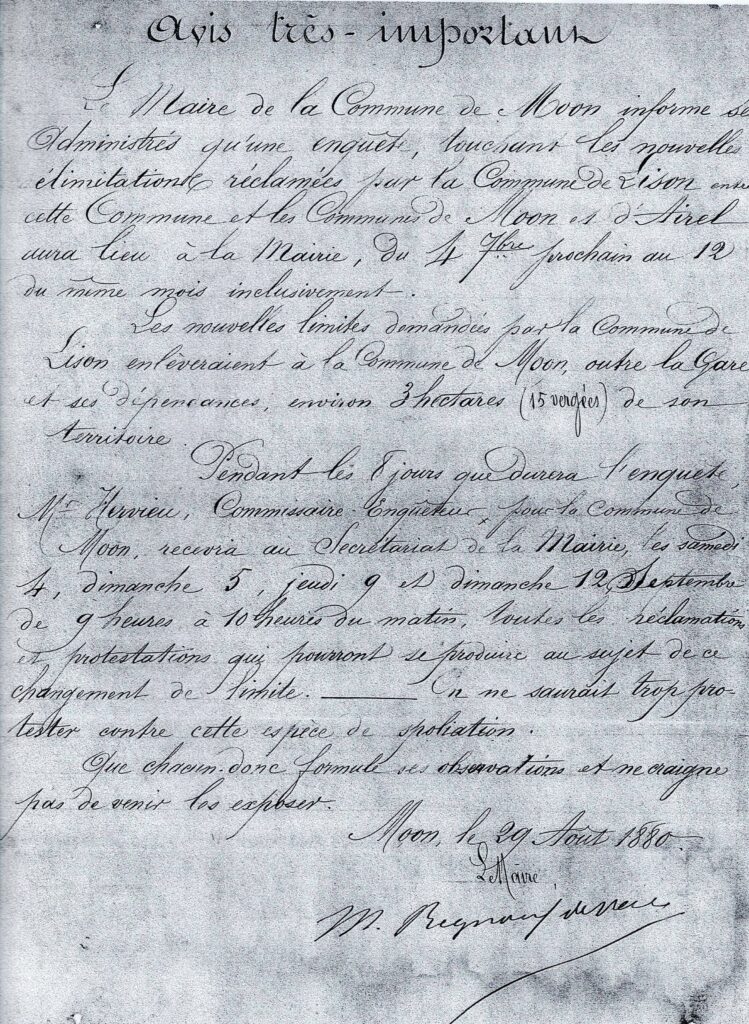 Avis très-important
Le Maire de la Commune de Moon informe se
Administrés qu'une enquête, touchant les nouvelles
élimitations réclamées par la Commune de Lison entre
cette Commune et les Communes de Moon et d'Airel
aura lieu à la Mairie, du 4 7bre prochain au 12
du même mois inclusivement.
Les nouvelles limites demandées par la Commune de
Lison enlèveraient à la Commune de Moon, outre la Gare
et ses dépendances, environ 3 hectares (15 vergées) de son
territoire.
Pendant les 8 jours que durera l'enquête,
Mr Hervieu, Commissaire Enquêteur, pour la Commune de
Moon, recevra au Secrétariat de la Mairie, les samedi
4, dimanche 5, jeudi 9 et dimanche 12 Septembre
de 9 heures à 10 heures du matin, toutes les réclamations
et protestations qui pourront se produire au sujet de ce
changement de limite. ——— On ne saurait trop pro-
tester contre cette espèce de spoliation.
Que chacun donc formule ses observations et ne craigne
pas de venir les exposer.
Moon, le 29 Août 1880.
Le Maire
M.